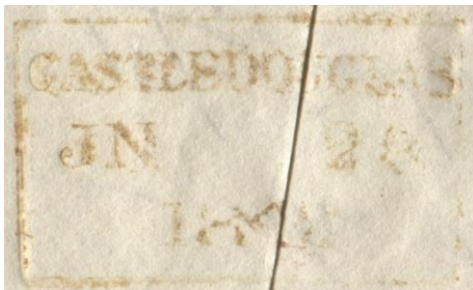 CASTLEDOUGLAS
JN 28